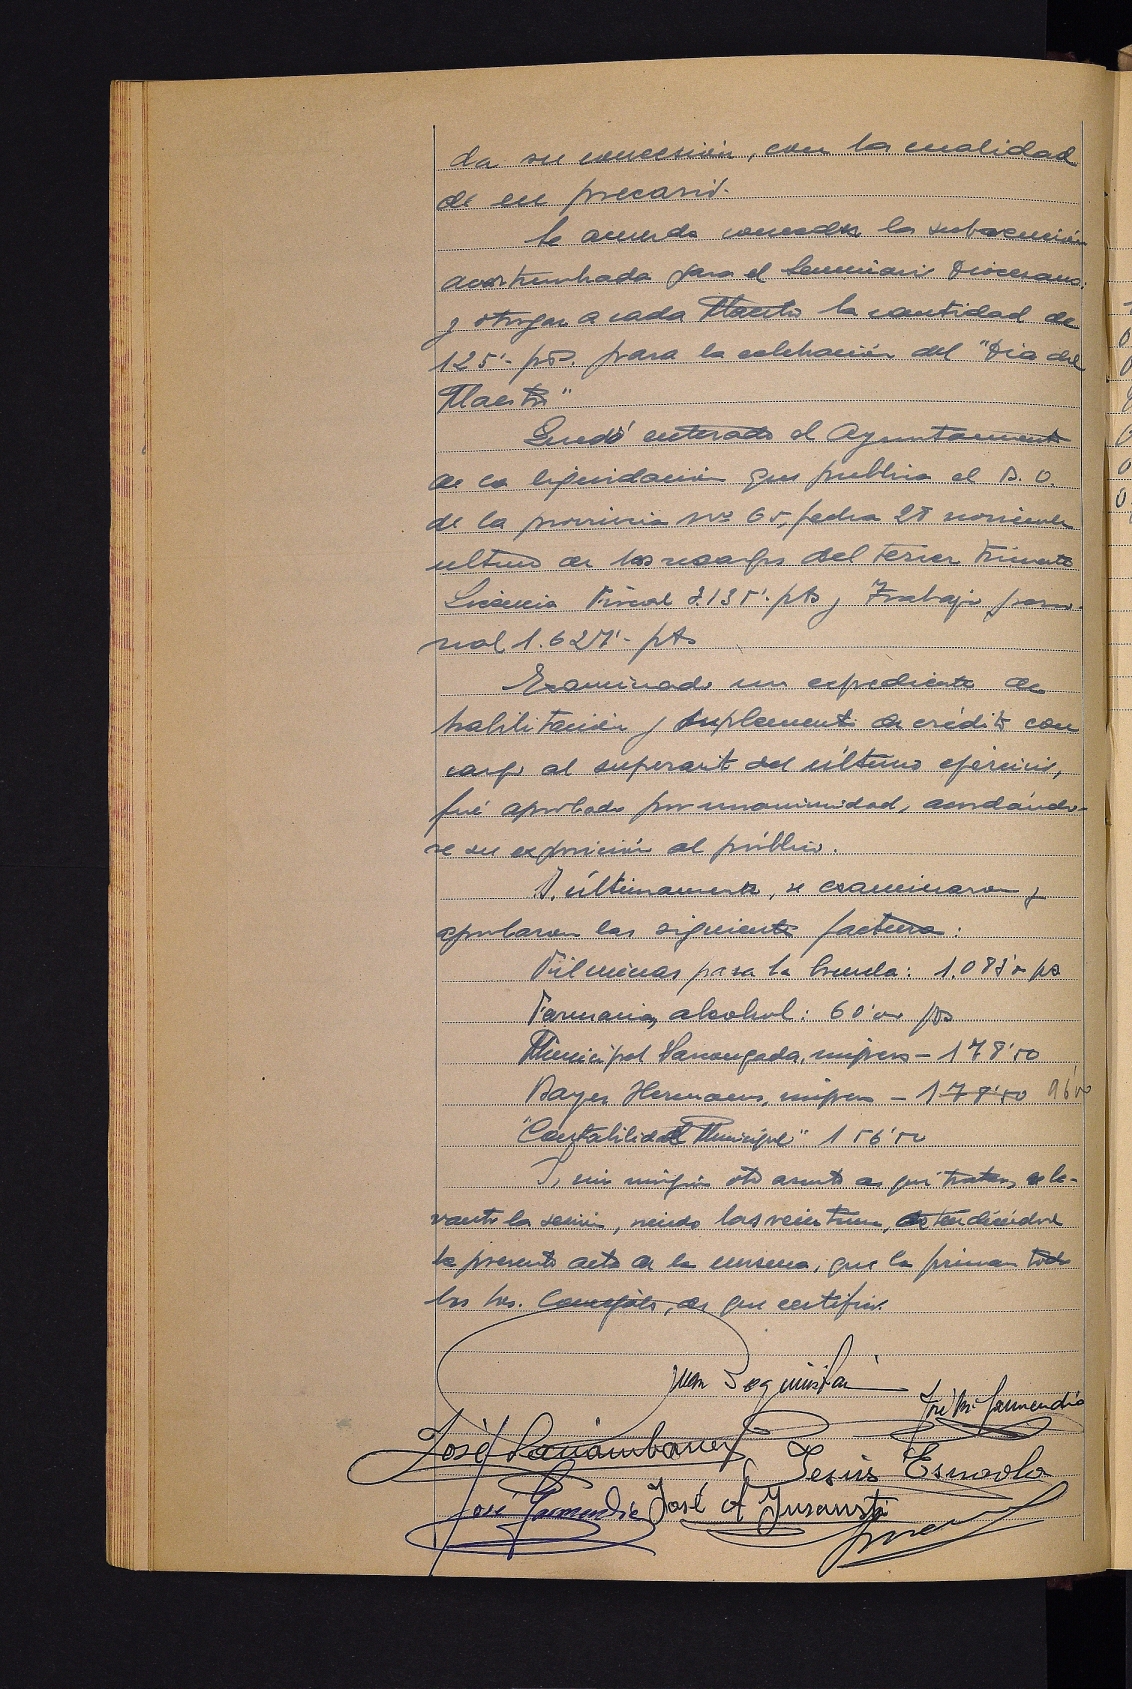 da su concesión, con la cualidad
de en precario.
Se acuerda conceder la subvención
acostumbrada para el Seminario Diocesano.
y otorgar a cada Maestro la cantidad de
125'- pts. para la celebración del "Día del
Maestro"
Quedó enterado el Ayuntamiento
de la liquidación que publica el B. O.
de la provincia nº 65, fecha 28 noviembre
último de los recargos del tercer trimestre
Licencia Fiscal pts y Trabajo perso-
nal 1.627'- pts
Examinado un expediente de
habilitación y suplemento de crédito con
cargo al superavit del último ejercicio,
fué aprobado por unanimidad, acordándo-
se su exposición al público.
Y, últimamente, se examinaron y
aprobaron las siguientes facturas:
para la Escuela: pts
Farmacia, alcohol: 60'00 pts
Municipal Vascongada, impresos - 178'50
Bayer Hermanos, impresos - 178'50 96'00
"Contabilidad Municipal" 156'50
Y, sin ningún otro asunto de que tratar, se le-
vantó la sesión, siendo las veintiuna, extendiéndose
la presente acta de la misma, que la firman todos
los Srs. Concejales, de que certifico.
Juan Beguiristain
José M. Garmendia
José
Jesús Esnaola
José Garmendia José A Insausti